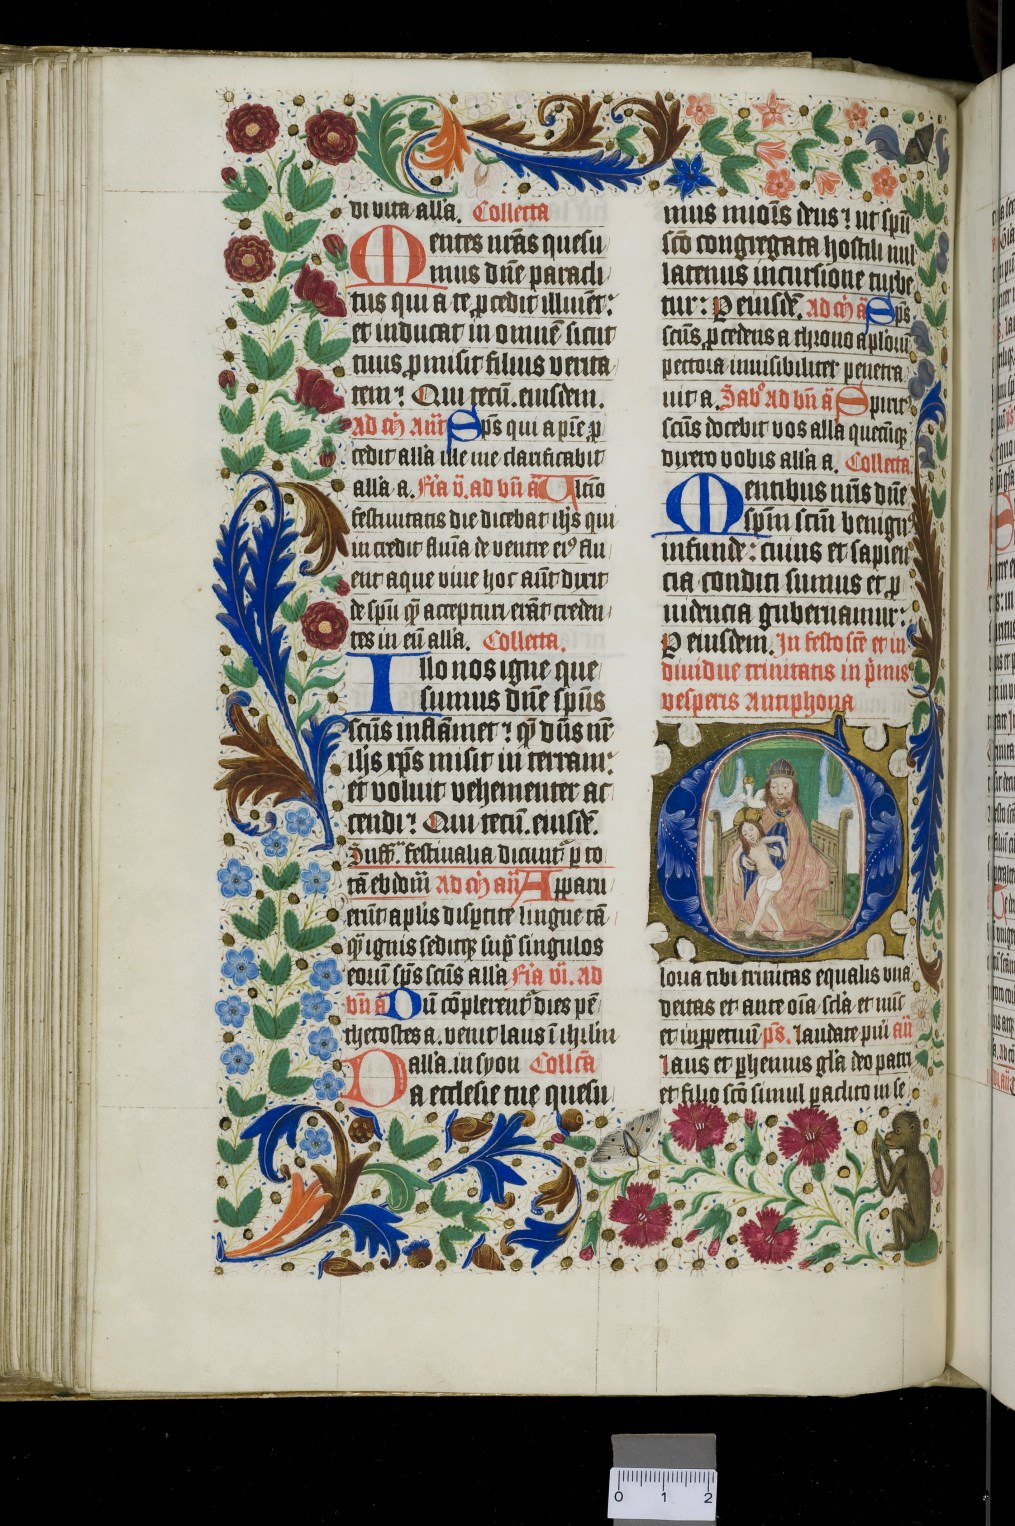 di vita all'a. Collecta
Mentes nr̄as quesu
mus dn̄e paracli
tus qui a te ꝓcedit illumēt:
et inducat in omnē sicut
tuus ꝓmisit filius verita
tem? Qui tecū. eiusdem.
Ad m̄ an̄ Sp̄s qui a pr̄e ꝓ
cedit all'a ille me clarificabit
all'a a. Fīa v. ad vn̄ ā Ultīo
festivitatis die dicebat ih̄s qui
in me credit flūīa de ventre eiꝰ flu
ent aque vive hoc aūt dixit
de sp̄u qm̄ accepturi erāt creden
tes in eū all'a. Collecta.
Illo nos igne que
sumus dn̄e sp̄us
sc̄us inflāmet? qm̄ dn̄s nr̄
ih̄s xp̄s misit in terram:
et voluit vehementer ac
cendi? Qui tecū. eiusdē.
Suffr̄. festivalia dicunt᷑ ꝑ to
tā ebdom̄ Ad m̄ an̄ Apparu
erūt apl̄is disꝑtite lingue tā
qm̄ ignis seditqꝫ supra singulos
eorū sp̄s sc̄us all'a Fīa vi. ad
vn̄ ā Dū cōplerent᷑ dies pē
thecostes a. venit laus ī ih̄rlm
all'a. in syon Collc̄a
Da ecclesie tue quesu
mus mīo͞s deus? ut sp̄u
sc̄o congregata hostili nul
latenus incursione turbe
tur: P eiusdē. Ad m̄ ā Sp̄s
sc̄us ꝓcedens a throno apl̄orū
pectora invisibiliter penetra
vit a. Sabᵒ ad vn̄ ā Spirit'
sc̄us docebit vos all'a quecūqꝫ
dixero vobis all'a a. Collecta.
Mentibus nr̄is dn̄e
sp̄m sc̄m benignꝰ
infunde: cuius et sapien
cia conditi sumus et ꝓ
videncia gubernamur:
P eiusdem. In festo sc̄e et in
dividue trinitatis in p̄mis
vesperis Antiphona
Gloria tibi trinitas equalis una
deitas et ante oīa sc̄la et nūc
et in ꝑpetuū ps. Laudate puī an̄
Laus et ꝑhennis gl̄a deo patri
et filio sc̄o simul paclito in se
0 1 2